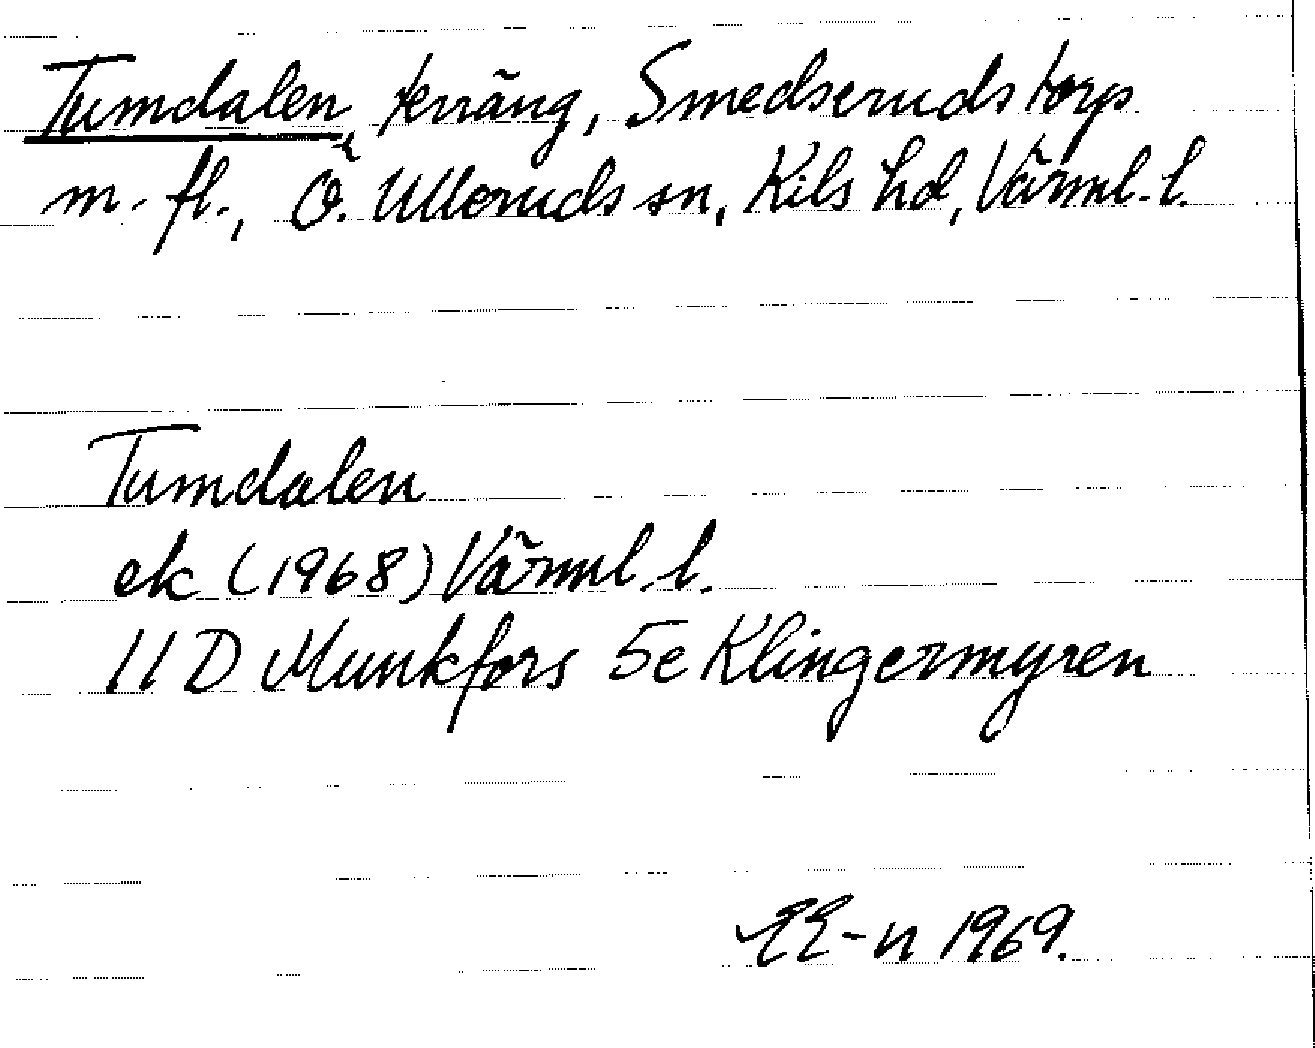 Tumdalen, terräng, Smedserudstorp
m. fl., Ö. Ulleruds sn, Kils hd, Värml. l.
Tumdalen
ek (1968) Värml. l.
11 D Munkfors 5e Klingermyren
EE-n 1969.